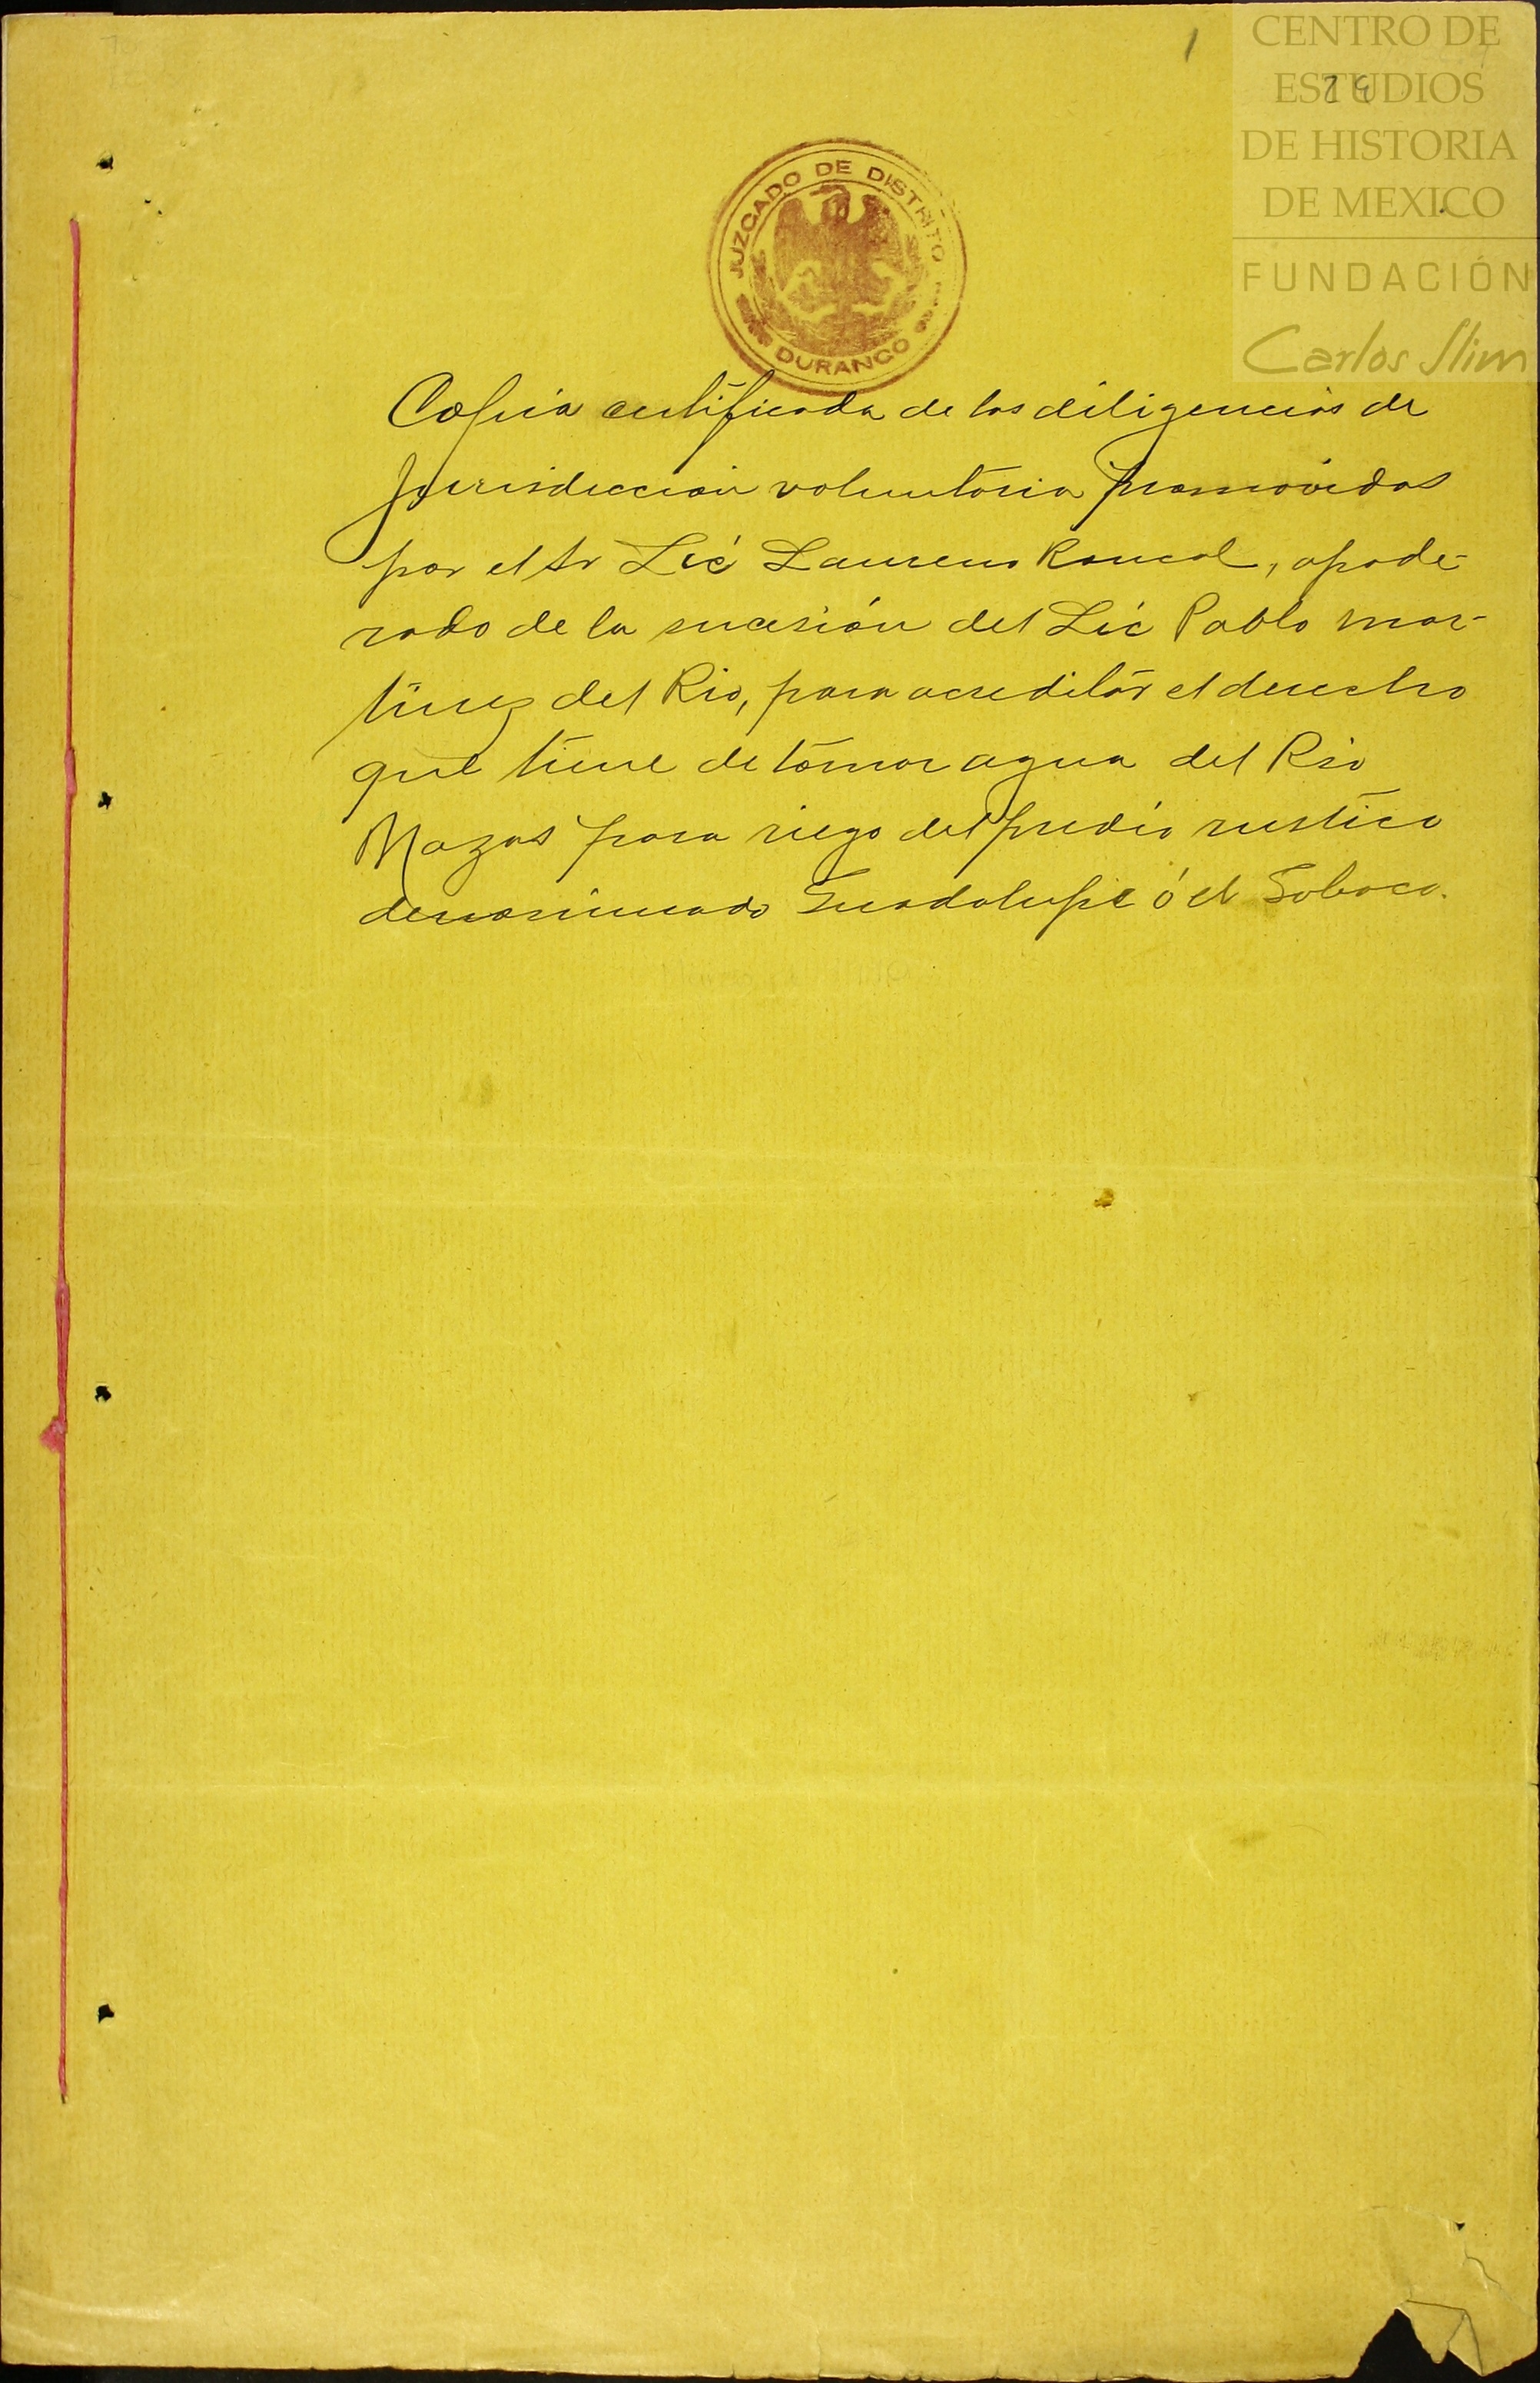 1
CENTRO DE
ESTUDIOS
DE HISTORIA
DE MEXICO
FUNDACIÓN
Carlos Slim
JUZGADO DE DISTRITO
DURANGO
Copia certificada de las diligencias de
jurisdiccion voluntaria promovidas
por el Sr Lic Laureno Roncal, apode-
rado de la sucesión del Lic Pablo Mar-
tinez del Rio, para acreditar el derecho
que tiene de tomar agua del Rio
Nazas para riego del predio rustico
denominado Guadalupe ó el Sobaco.